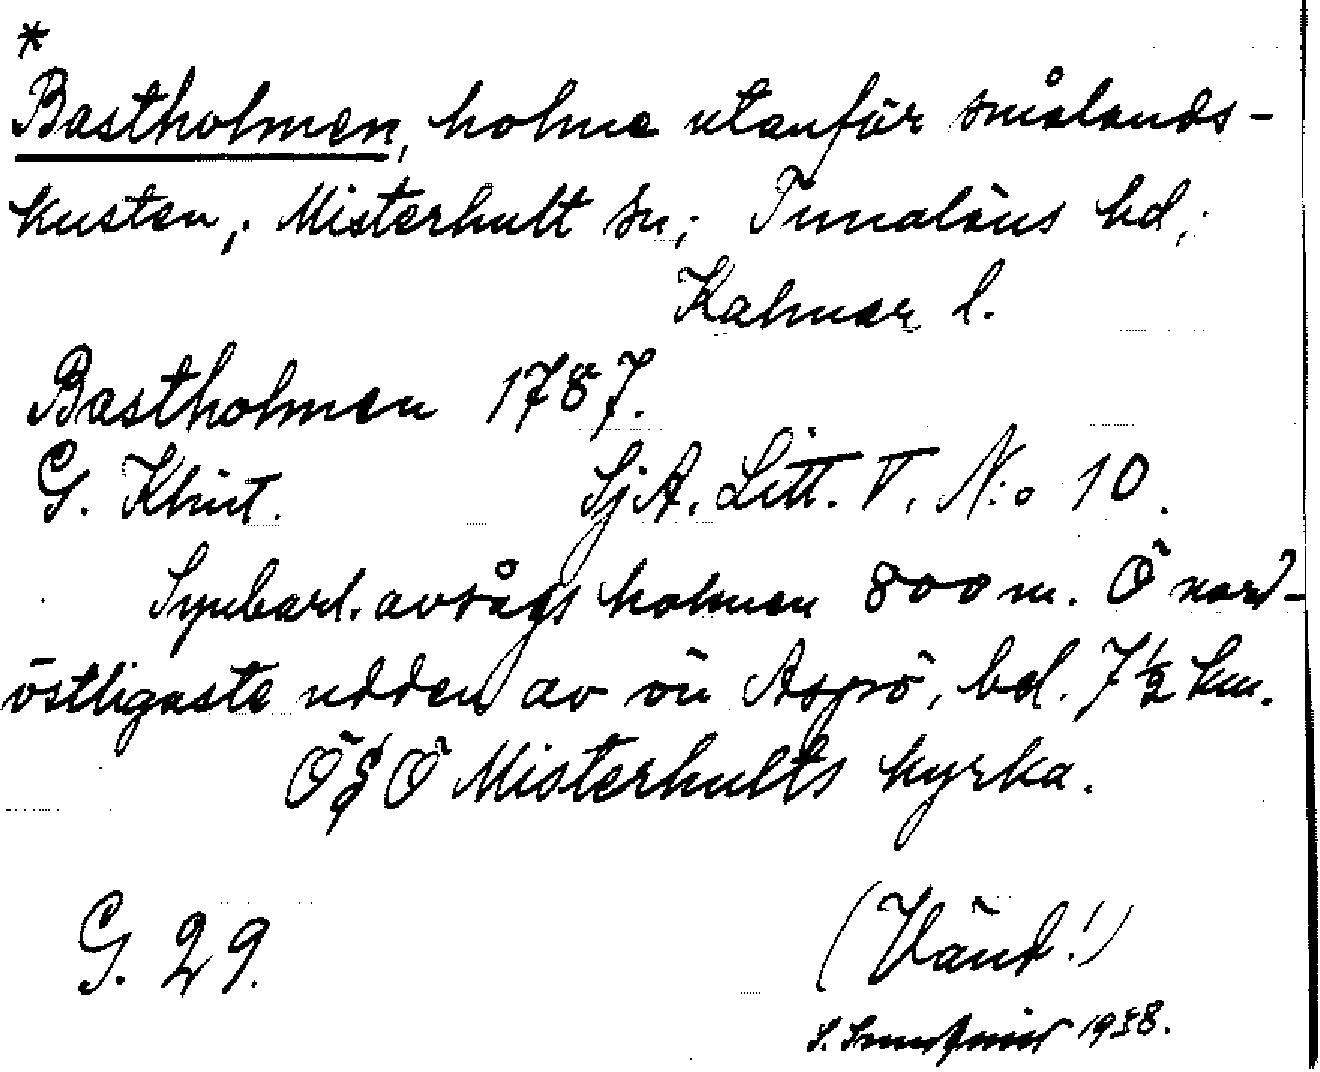 *
Bastholmen, holme utanför smålands-
kusten; Misterhult sn; Tunaläns hd;
Kalmar l.
Bastholmen 1787.
G. Klint. SjA. Litt. V. N:o 10.
Synbarl. avsågs holmen 800 m. Ö nord-
östligaste udden av ön Aspö, bel. 7 1/2 km.
ÖSÖ Misterhults kyrka.
G. 29. (Vänd!)
S. 1938.